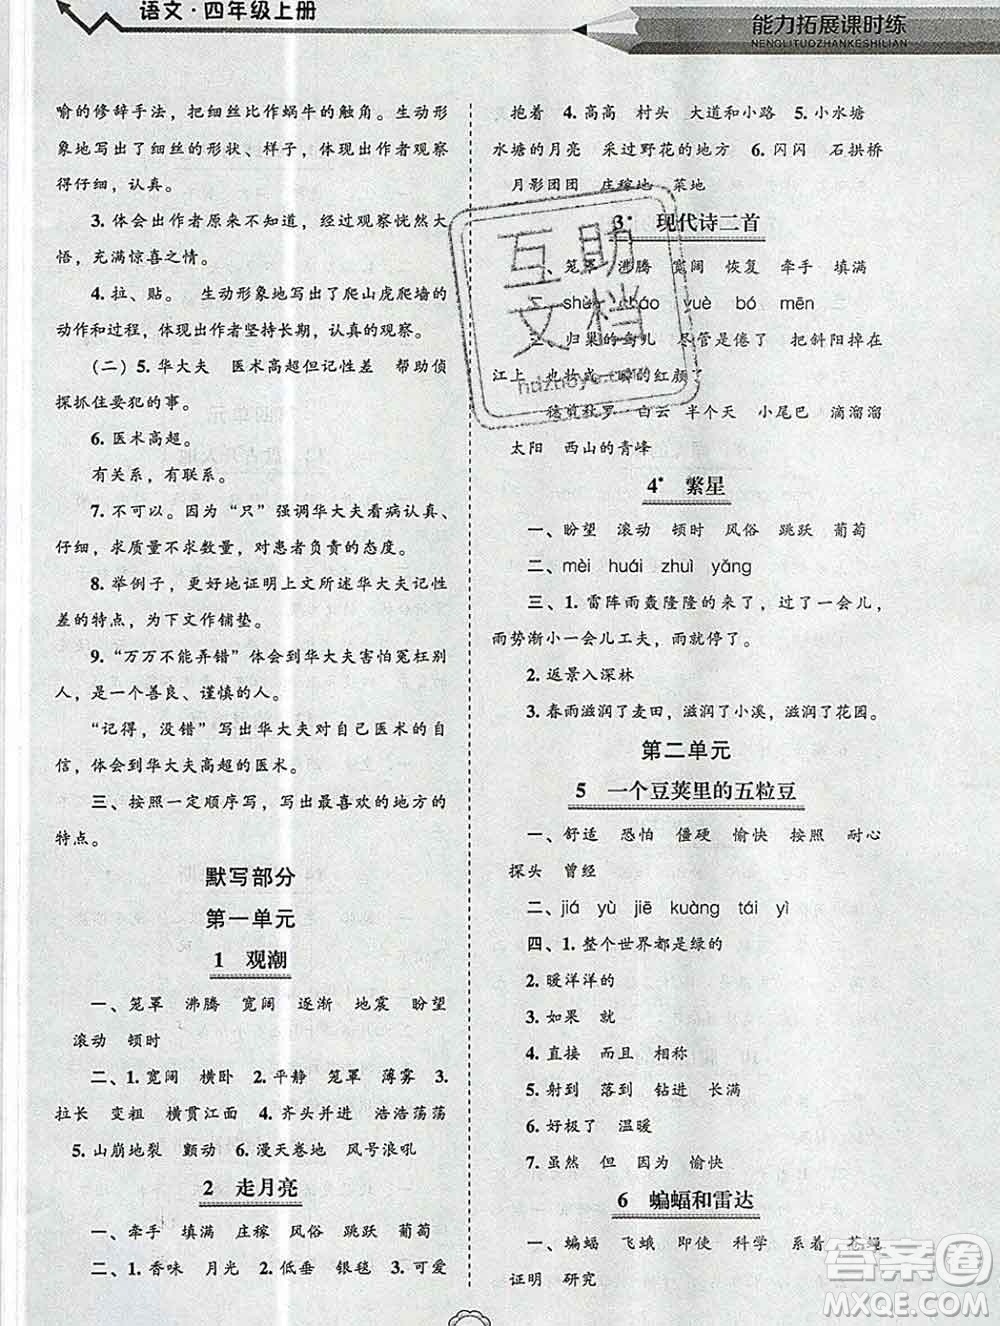 语文·四年级上册
能力拓展课时练
NENGLITUOZHANKESHILIAN
喻的修辞手法，把细丝比作蜗牛的触角。生动形
象地写出了细丝的形状、样子，体现出作者观察
得仔细，认真。
3. 体会出作者原来不知道，经过观察恍然大
悟，充满惊喜之情。
4. 拉、贴。 生动形象地写出了爬山虎爬墙的
动作和过程，体现出作者坚持长期，认真的观察。
(二) 5. 华大夫 医术高超但记性差 帮助侦
探抓住要犯的事。
6. 医术高超。
有关系，有联系。
7. 不可以。因为“只”强调华大夫看病认真、
仔细，求质量不求数量，对患者负责的态度。
8. 举例子，更好地证明上文所述华大夫记性
差的特点，为下文作铺垫。
9. “万万不能弄错”体会到华大夫害怕冤枉别
人，是一个善良、谨慎的人。
“记得，没错”写出华大夫对自己医术的自
信，体会到华大夫高超的医术。
三、按照一定顺序写，写出最喜欢的地方的
特点。
默写部分
第一单元
1 观潮
一、笼罩 沸腾 宽阔 逐渐 地震 盼望
滚动 顿时
二、1. 宽阔 横卧 2. 平静 笼罩 薄雾 3.
拉长 变粗 横贯江面 4. 齐头并进 浩浩荡荡
5. 山崩地裂 颤动 6. 漫天卷地 风号浪吼
2 走月亮
一、牵手 填满 庄稼 风俗 跳跃 葡萄
二、1. 香味 月光 2. 低垂 银毯 3. 可爱
抱着 4. 高高 村头 大道和小路 5. 小水塘
水塘的月亮 采过野花的地方 6. 闪闪 石拱桥
月影团团 庄稼地 菜地
3* 现代诗二首
一、笼罩 沸腾 宽阔 恢复 牵手 填满
二、shù cháo yuè bó mēn
三、归巢的鸟儿 尽管是倦了 把斜阳掉在
江上 也妆成一瞬的红颜了
白云 半个天 小尾巴 滴溜溜
太阳 西山的青峰
4* 繁星
一、盼望 滚动 顿时 风俗 跳跃 葡萄
二、mèi huái zhuì yǎng
三、1. 雷阵雨轰隆隆的来了，过了一会儿，
雨势渐小一会儿工夫，雨就停了。
2. 返景入深林
3. 春雨滋润了麦田，滋润了小溪，滋润了花园。
第二单元
5 一个豆荚里的五粒豆
一、舒适 恐怕 僵硬 愉快 按照 耐心
探头 曾经
二、jiá yù jiē kuàng tái yì
四、1. 整个世界都是绿的
2. 暖洋洋的
3. 如果 就
4. 直接 而且 相称
5. 射到 落到 钻进 长满
6. 好极了 温暖
7. 虽然 但 因为 愉快
6 蝙蝠和雷达
一、蝙蝠 飞蛾 即使 科学 系着 花绳
证明 研究
互助
文档
答案圈
MXQE.COM